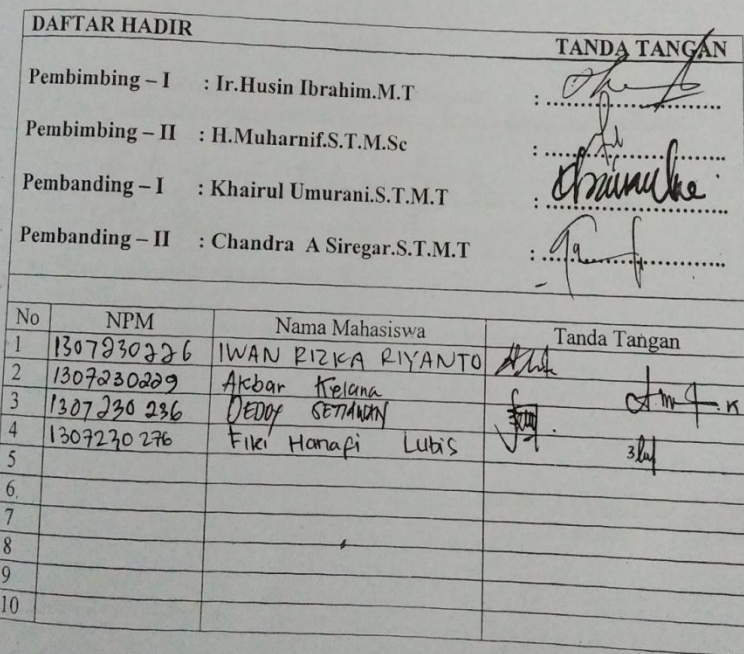 DAFTAR HADIR
TANDA TANGAN
Pembimbing – I : Ir.Husin Ibrahim.M.T : ........................
Pembimbing – II : H.Muharnif.S.T.M.Sc : ........................
Pembanding – I : Khairul Umurani.S.T.M.T : ........................
Pembanding – II : Chandra A Siregar.S.T.M.T : ........................
No NPM Nama Mahasiswa Tanda Tangan
1 1307230226 IWAN RIZKA RIYANTO
2 1307230229 Akbar Kelana
3 1307230236 DEDDY SETIAWAN
4 1307230276 Fiki Hanafi Lubis
5
6.
7
8
9
10